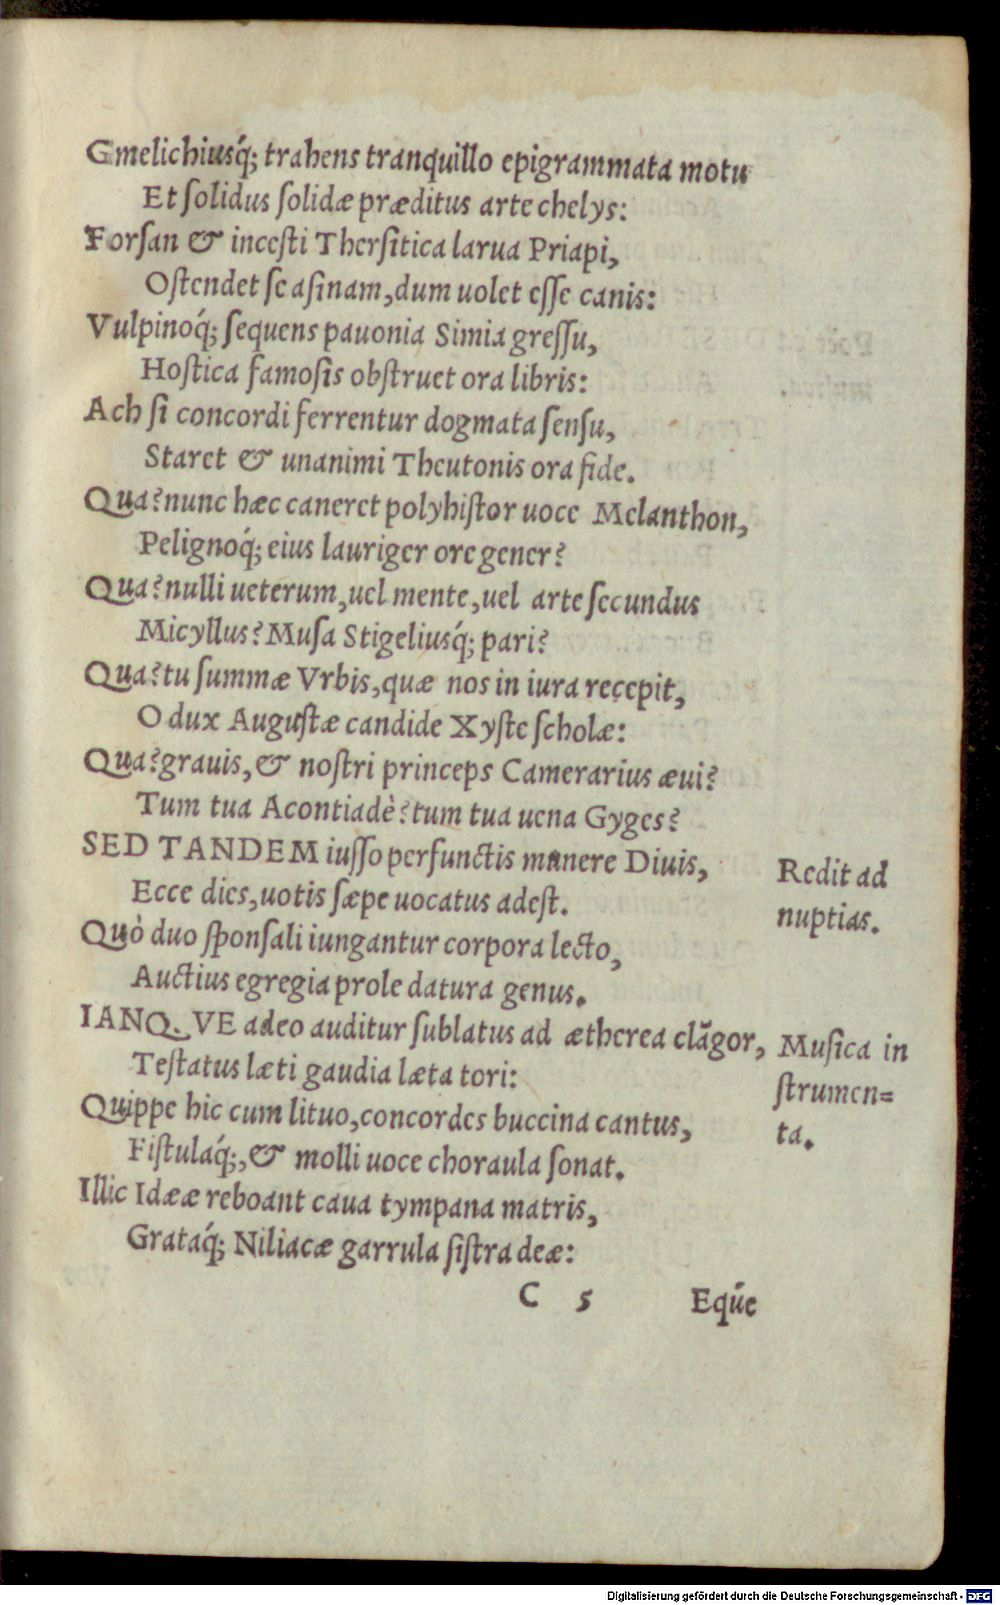 Gmelichiusq́; trahens tranquillo epigrammata motu
Et ſolidus ſolidæ præditus arte chelys:
Forſan & inceſti Therſitica larua Priapi,
Oſtendet ſe aſinam, dum uolet eſſe canis:
Vulpinoq́; ſequens pauonia Simia greſſu,
Hoſtica famoſis obſtruet ora libris:
Ach ſi concordi ferrentur dogmata ſenſu,
Staret & unanimi Theutonis ora fide.
Qua? nunc hæc caneret polyhiſtor uoce Melanthon,
Pelignoq́; eius lauriger ore gener?
Qua? nulli ueterum, uel mente, uel arte ſecundus
Micyllus? Muſa Stigeliusq́; pari?
Qua? tu ſummæ Vrbis, quæ nos in iura recepit,
O dux Auguſtæ candide Xyſte ſcholæ:
Qua? grauis, & noſtri princeps Camerarius æui?
Tum tua Acontiadè? tum tua uena Gyges?
SED TANDEM iuſſo perfunctis munere Diuis,
Ecce dies, uotis ſæpe uocatus adeſt.
Redit ad
nuptias.
Quò duo ſponſali iungantur corpora lecto,
Auctius egregia prole datura genus.
IANQ. VE adeo auditur ſublatus ad ætherea clãgor,
Teſtatus læti gaudia læta tori:
Muſica in
ſtrumen=
ta.
Quippe hic cum lituo, concordes buccina cantus,
Fiſtulaq́;, & molli uoce choraula ſonat.
Illic Idææ reboant caua tympana matris,
Grataq́; Niliacæ garrula ſiſtra deæ:
C 5 Eq́ue
Digitalisierung gefördert durch die Deutsche Forschungsgemeinschaft - DFG